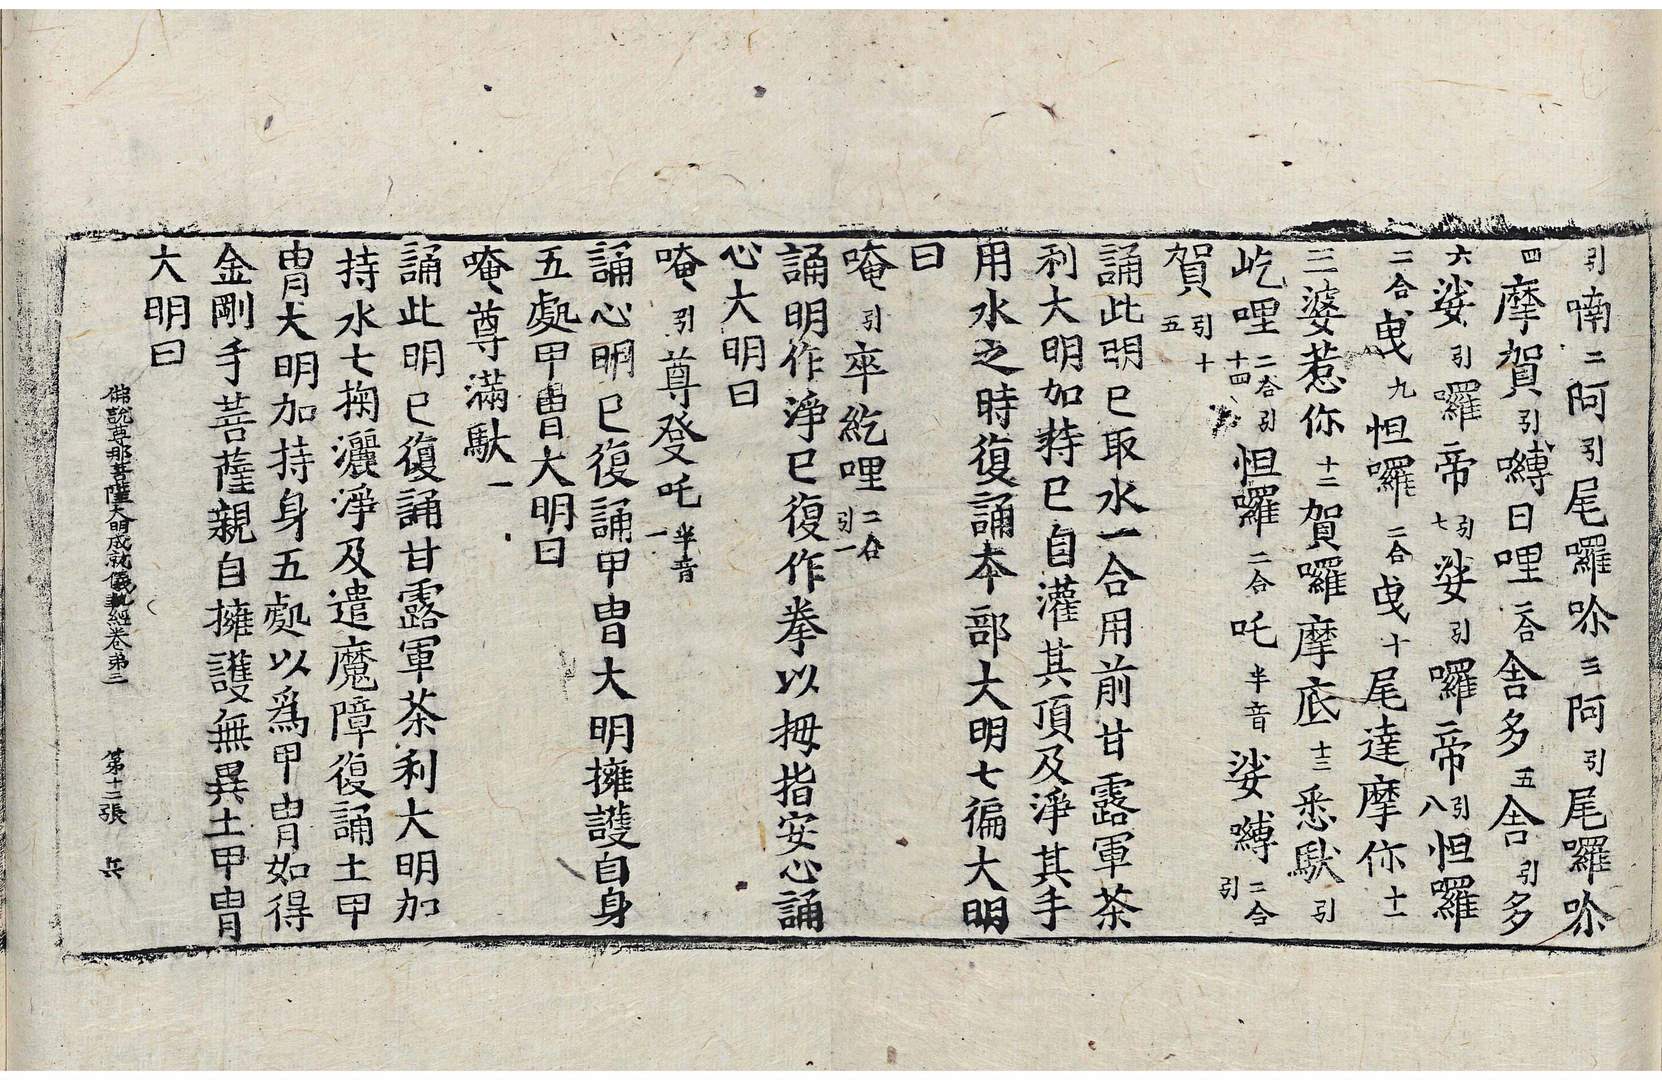 引喃二阿引尾囉吩三阿引尾囉吩
四摩賀引嚩日哩二合舍多五舍引多
六娑引囉帝引七娑引囉帝引八怛囉
二合曳九怛囉二合曳十尾達摩你十一
三婆惹你十二賀囉摩底十三悉馱引
屹哩二合引十四怛囉二合吒半音娑嚩二合引
賀引十五
誦此明已取水一合用前甘露軍茶
利大明加持已自灌其頂及淨其手
用水之時復誦本部大明七徧大明
曰
唵引卒紇哩二合引一
誦明作淨已復作拳以拇指安心誦
心大明曰
唵引尊發吒半音一
誦心明已復誦甲冑大明擁護自身
五處甲冑大明曰
唵尊滿馱一
誦此明已復誦甘露軍茶利大明加
持水七掬灑淨及遣魔障復誦土甲
冑大明加持身五處以爲甲冑如得
金剛手菩薩親自擁護無異土甲冑
大明曰
佛說尊那菩薩大明成就儀軌經卷弟三　第十二張　兵